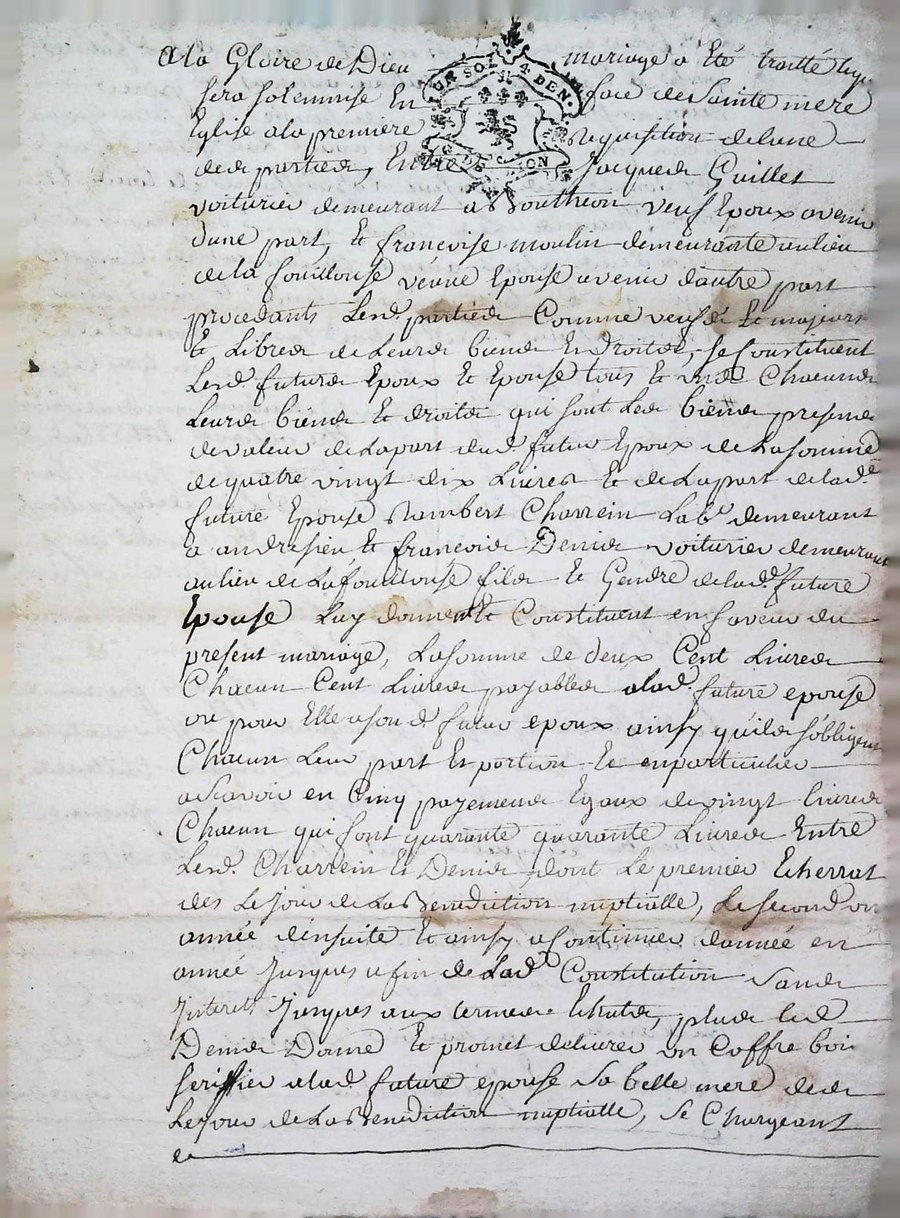 A la Gloire de Dieu mariage a été traitté lequ
sera solemnise En face de Sainte mere
UN SOL 4 DEN.
G. DE LYON
Eglise ala premiere Requisition delune
des parties, Entre Jacques Guillet
voiturier demeurant a Bouthéon veuf Epoux avenir
dune part, Et francoise moulin demeurante aulieu
de la fouillouse véuve Epouse avenir dautre part
procedants Lesd. parties Comme veufs Et majeurs
Et Libres de Leurs biens Et Droits, se Constituent
Lesd. futurs Epoux Et Epouse tous Et uns Chacuns
Leurs biens Et droits qui sont Les biens presents
de valeur de Lapart dud. futur Epoux de Lasomme
de quatre vingt dix Livres Et de Lapart de lad.e
future Epouse Rambert Charrein Lab.r demeurant
a andresieu Et francois Denis voiturier demeurant
aulieu de Lafouillouse fils Et Gendre delad.e future
Epouse Luy donnent Et Constituent en faveur du
present mariage, Lasomme de deux Cent Livres
Chacun Cent Livres payables alad. future epouse
ou pour Elle asond. futur epoux ainsy quils sobligent
Chacun Leur part Et portion Et enparticulier
aSavoir en Cinq payements Egaux de vingt livres
Chacun qui font quarante quarante Livres Entre
Lesd. Charrein Et Denis, dont Le premier Echerrat
des Le Jour de La Benediction nuptialle, Le second un
année densuite Et ainsy acontinuer dannée en
année Jusques afin de Lad.e Constitution Sans
Interets Jusques aux termes Echuts, plus led.
Denis Donne Et promet delivrer un Coffre bois
serisier alad. future epouse Sa belle mere des
Le Jour de La Benediction nuptialle, Se Chargeant